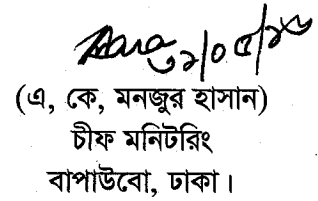 ৩১/০৫/১৬
(এ, কে, মনজুর হাসান)
চীফ মনিটরিং
বাপাউবো, ঢাকা।